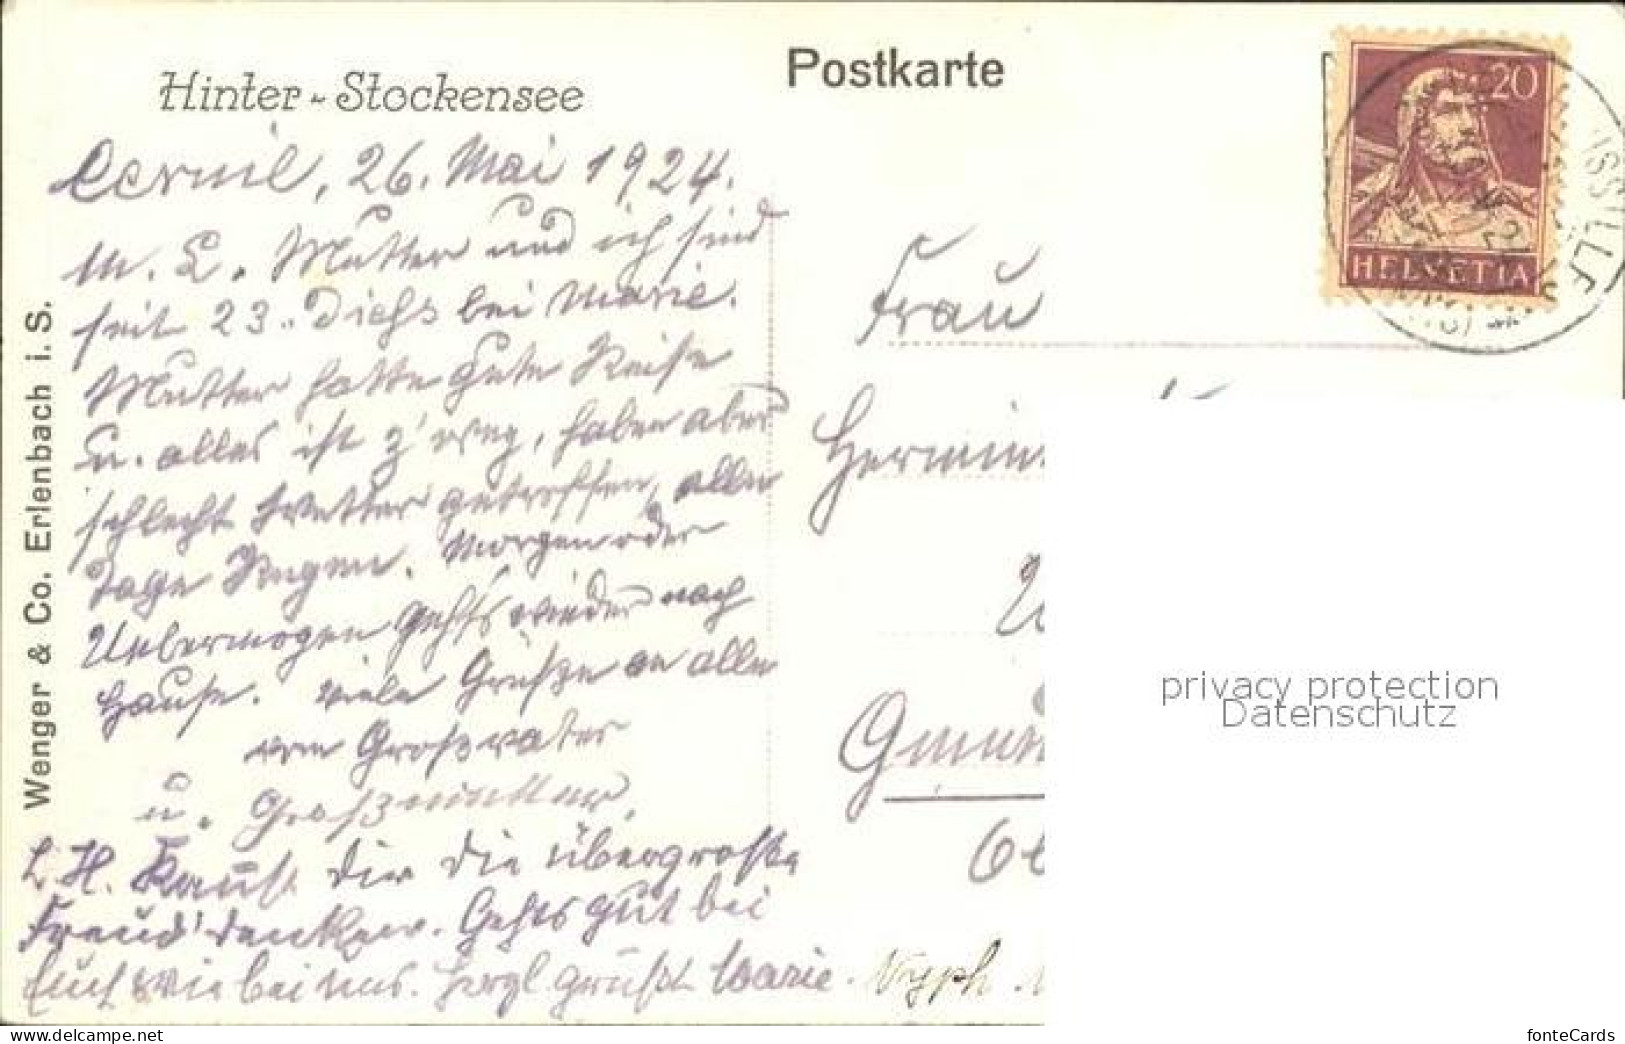 Hinter-Stockensee
Postkarte
20
HELVETIA
Wenger & Co. Erlenbach i. S.
Cernil, 26. Mai 1924.
M. L. Mutter und ich sind
seit 23. Dieß bei Marie.
Mutter hatte gute Reise
u. alles ist z'weg, haben aber
schlecht Wetter getroffen, alle
Tage Regen. Morgen oder
Uebermorgen gehts wieder nach
Hause. Viele Grüße an alle
vom Großvater
u. Großmutter.
L. H. Kannst dir die übergroße
Freud' denken. Gehts gut bei
Euch wie bei uns. Herzl. grüßt Marie.
Frau
Hermin
Gmün
privacy protection
Datenschutz
fonteCards
www.delcampe.net